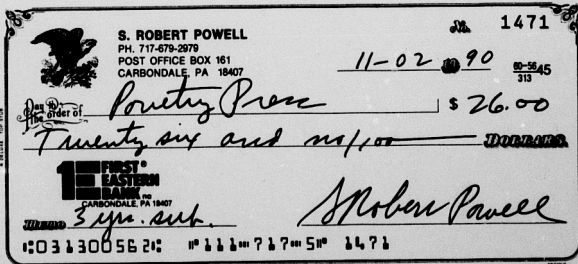 S. ROBERT POWELL
PH. 717-679-2979
POST OFFICE BOX 161
CARBONDALE, PA 18407
No. 1471
11-02 1990
60-56 45
313
Pay to the order of Poultry Press $ 26.00
Twenty six and no/100 DOLLARS
1 FIRST EASTERN BANK na
CARBONDALE, PA 18407
Memo 3 yrs. sub. S Robert Powell
⑆031300562⑆ ⑈111⑉717⑉5⑈ 1471